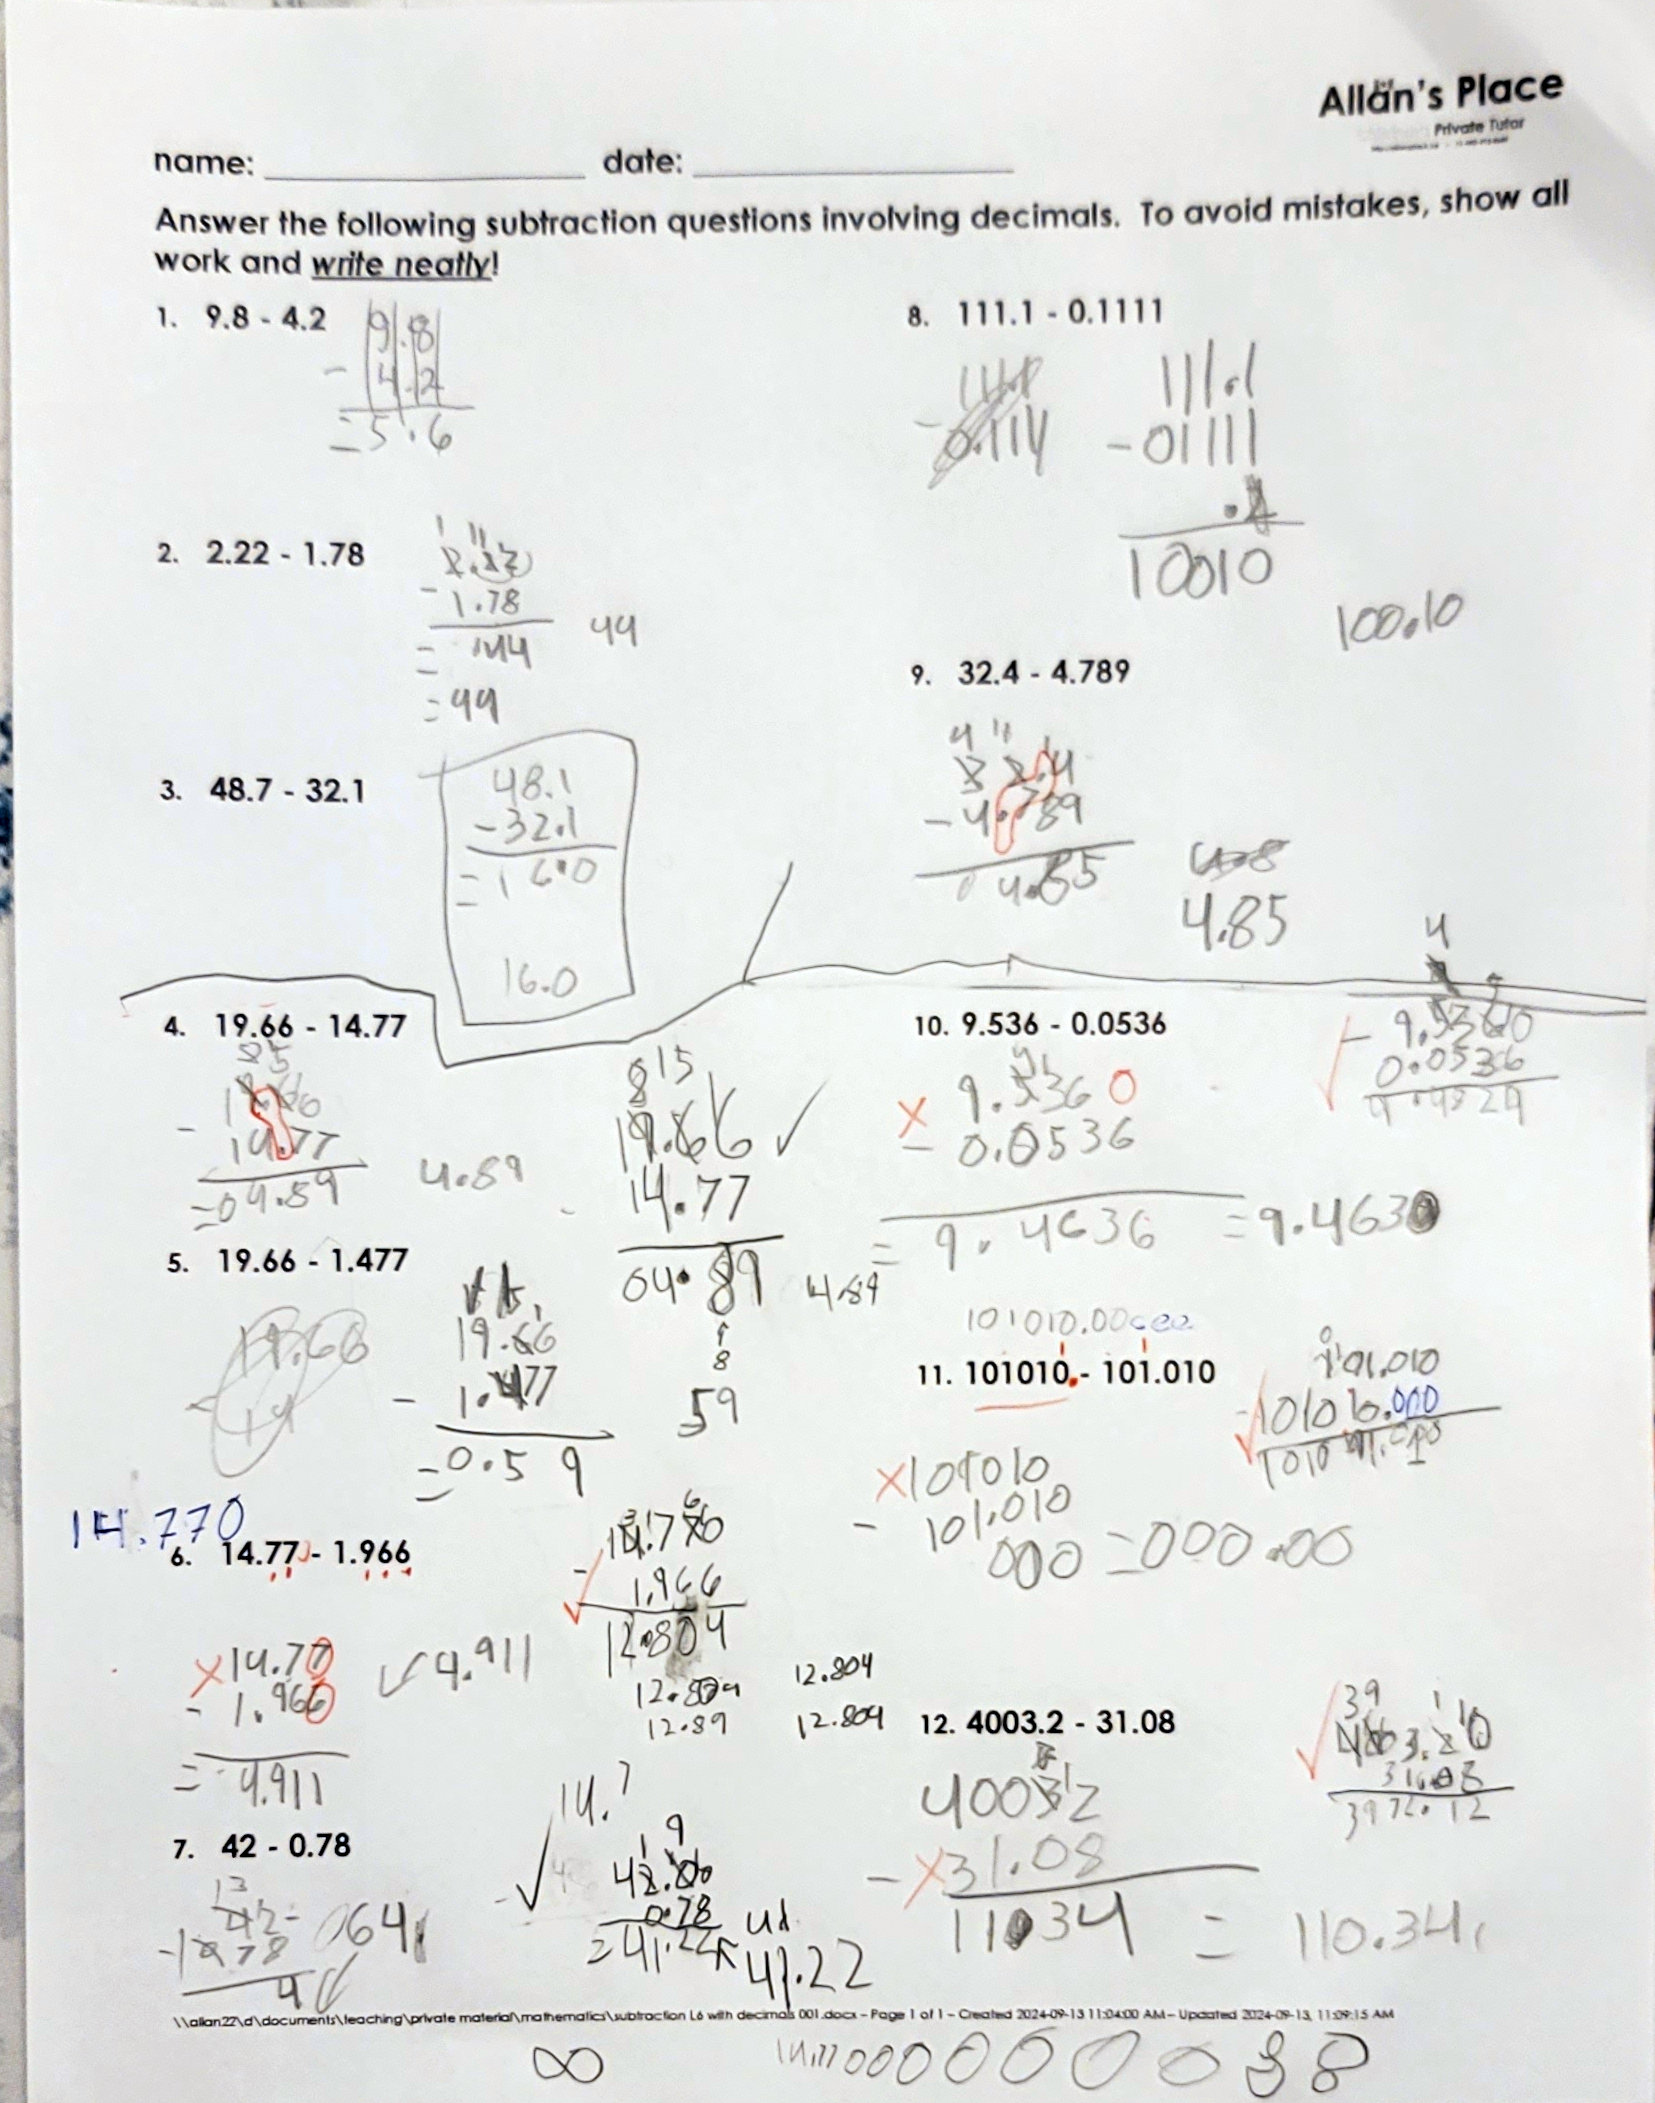 Allän's Place
Private Tutor
name: date:
Answer the following subtraction questions involving decimals. To avoid mistakes, show all
work and write neatly!
1. 9.8 - 4.2
9.8
- 4.2
= 5.6
2. 2.22 - 1.78
1 11
2.22
- 1.78
= .44 44
= 44
3. 48.7 - 32.1
48.1
- 32.1
= 16.0
16.0
4. 19.66 - 14.77
- 14.77
= 04.89
4.89
8 15
19.66 ✓
14.77
04.89 4.89
8
59
5. 19.66 - 1.477
19.66
19.66
- 1.477
= 0.59
14.770
6. 14.77 - 1.966
× 14.77
- 1.966
= 4.911
✓ 4.911
14.770
- 1.966
12.804
12.804
12.89 12.804
7. 42 - 0.78
42
0.78
4
064
14.7
9
42.00
0.78
= 41.22
41.22
8. 111.1 - 0.1111
111.1
- 0.111
111.1
- 01111
10010
100.10
9. 32.4 - 4.789
4 11
32.4
- 4.789
4.85
4.8
4.85
10. 9.536 - 0.0536
× 9.536 0
- 0.0536
= 9.4636 = 9.4630
4
- 9.5360
0.0536
9.4824
101010.00
11. 101010.- 101.010
101.010
- 101010.000
× 101010
- 101.010
000 = 000.00
12. 4003.2 - 31.08
40032
- × 31.08
11034 = 110.34
39 1 10
4003.20
31.08
3972.12
\\allan22\d\documents\teaching\private material\mathematics\subtraction L6 with decimals 001.docx – Page 1 of 1 – Created 2024-09-13 11:04:00 AM – Updated 2024-09-13, 11:09:15 AM
∞ 14.77000000000 8 8